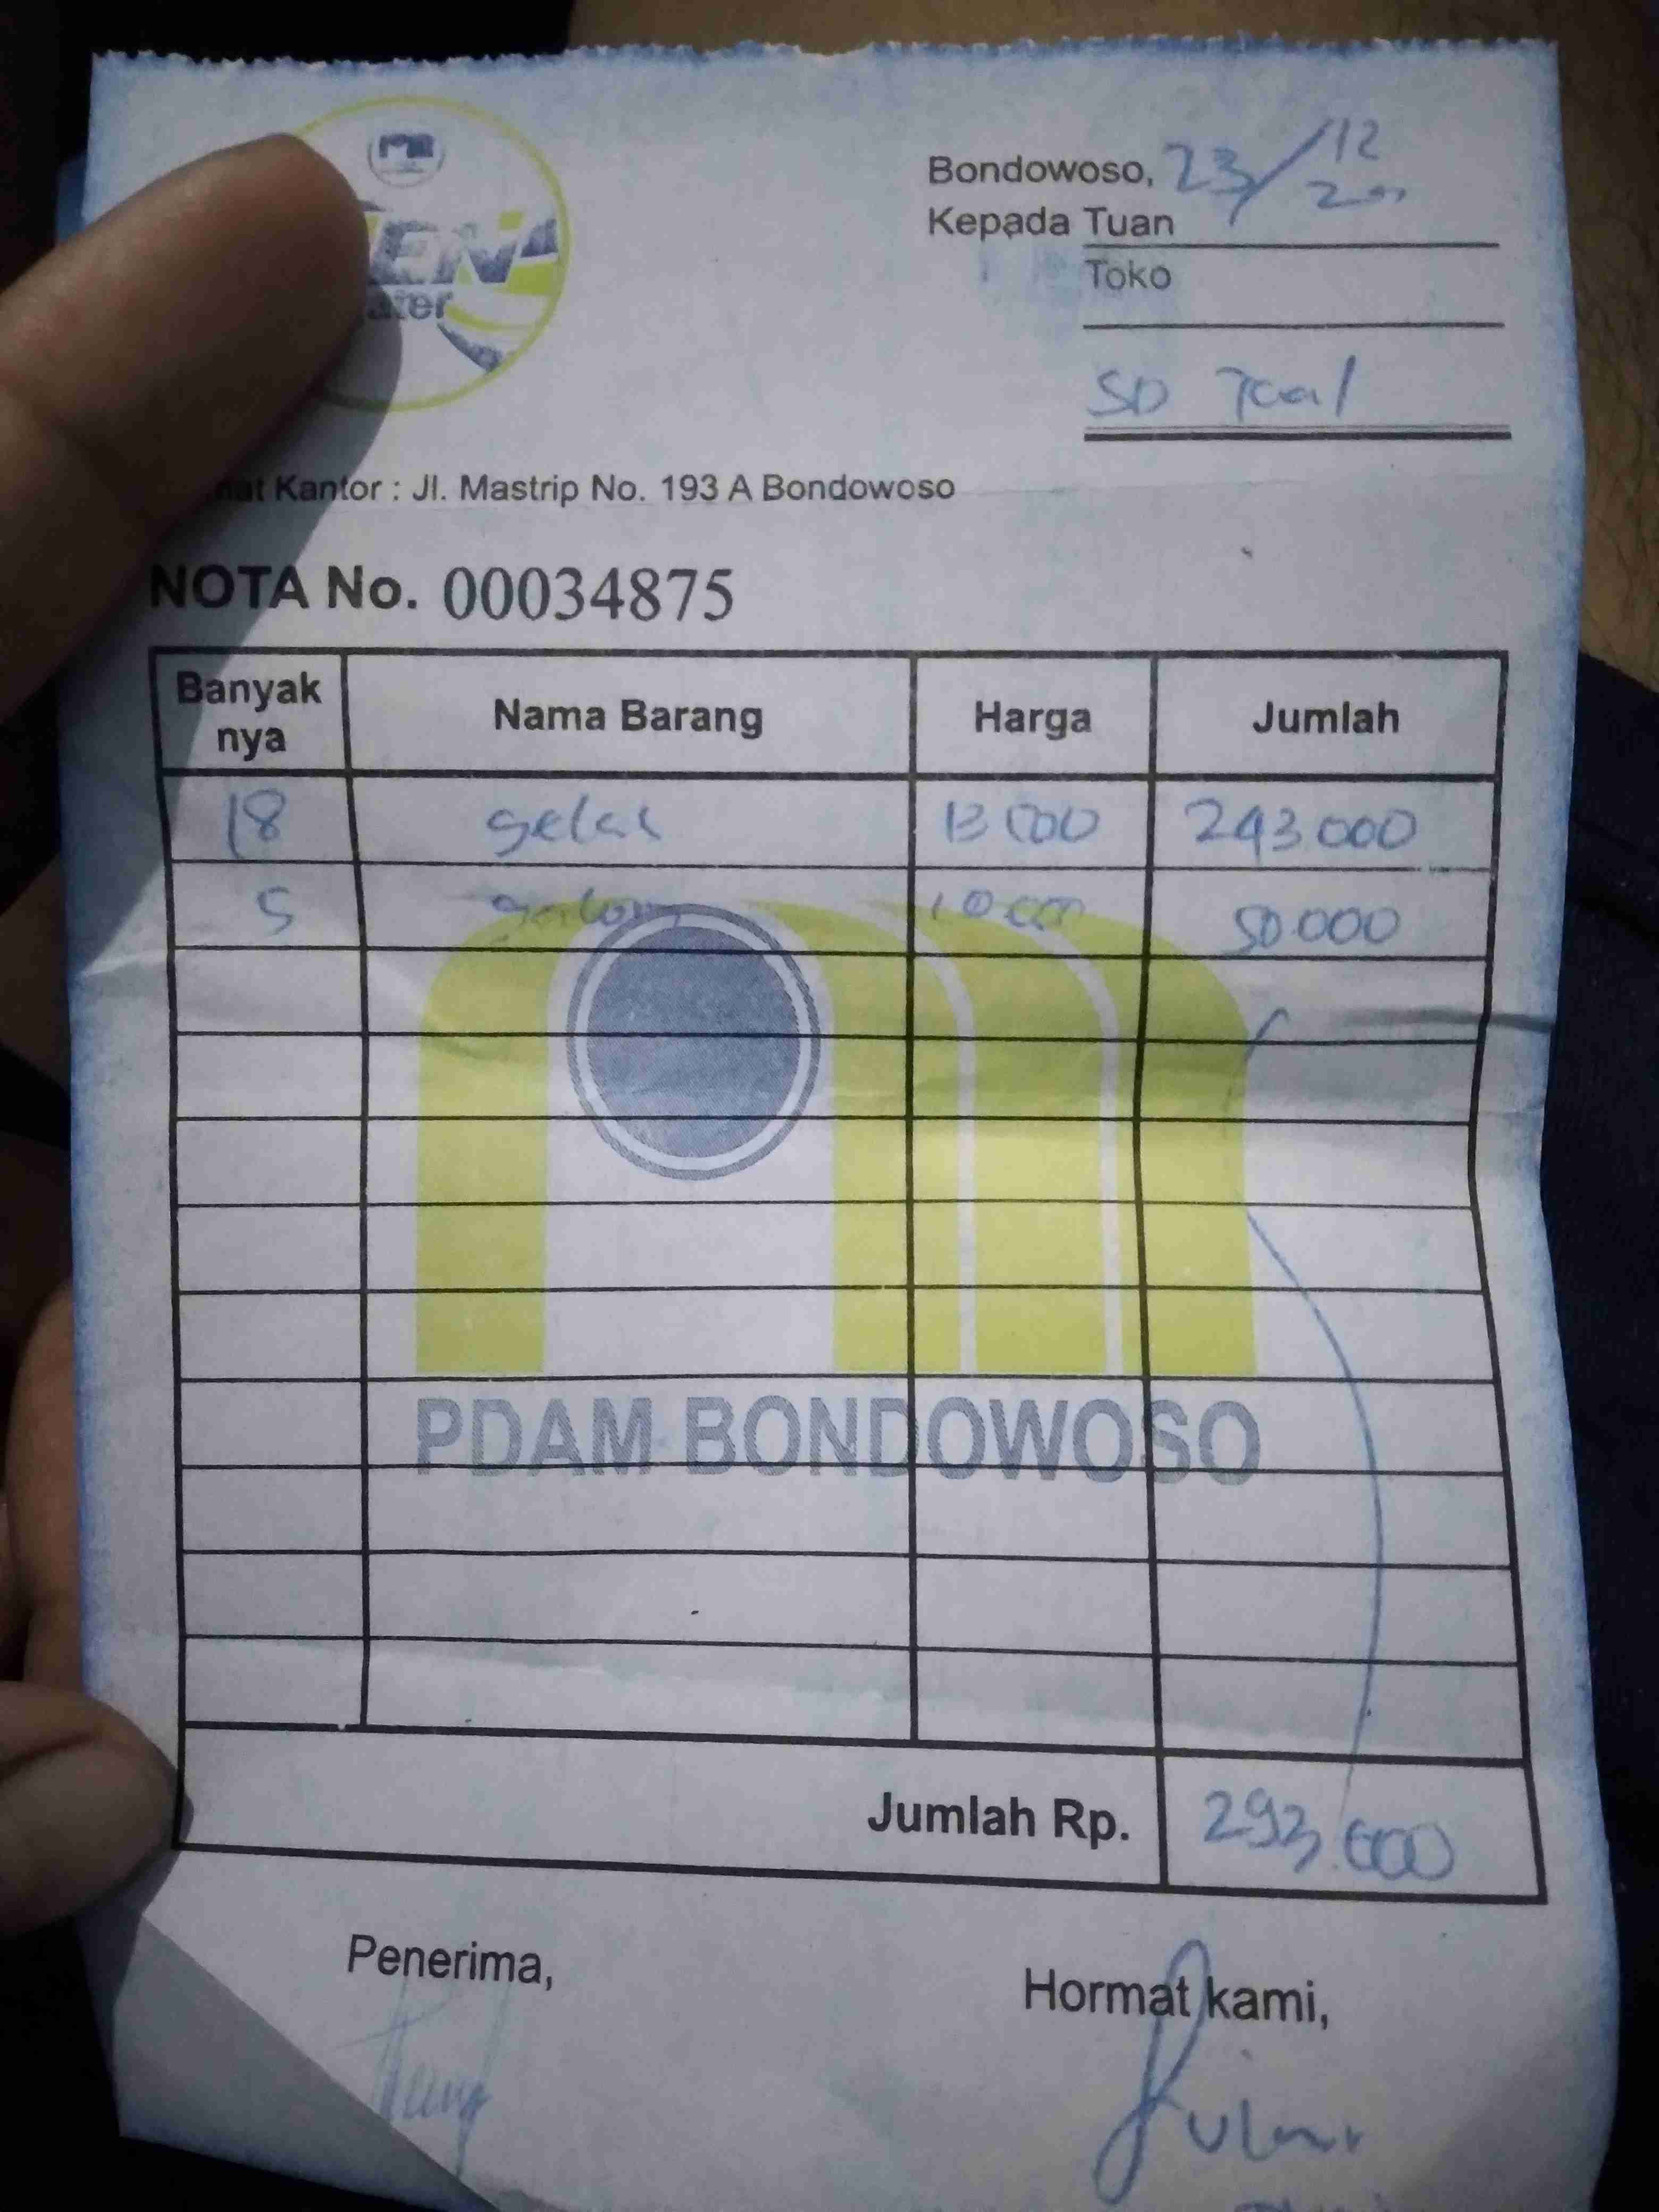 Bondowoso, 23/12
Kepada Tuan
Toko
SD Tcal
Kantor : Jl. Mastrip No. 193 A Bondowoso
NOTA No. 00034875
Banyak nya Nama Barang Harga Jumlah
18 gelas 13 500 243.000
5 galon 10 000 50.000
PDAM BONDOWOSO
Jumlah Rp. 293.000
Penerima,
Hormat kami,